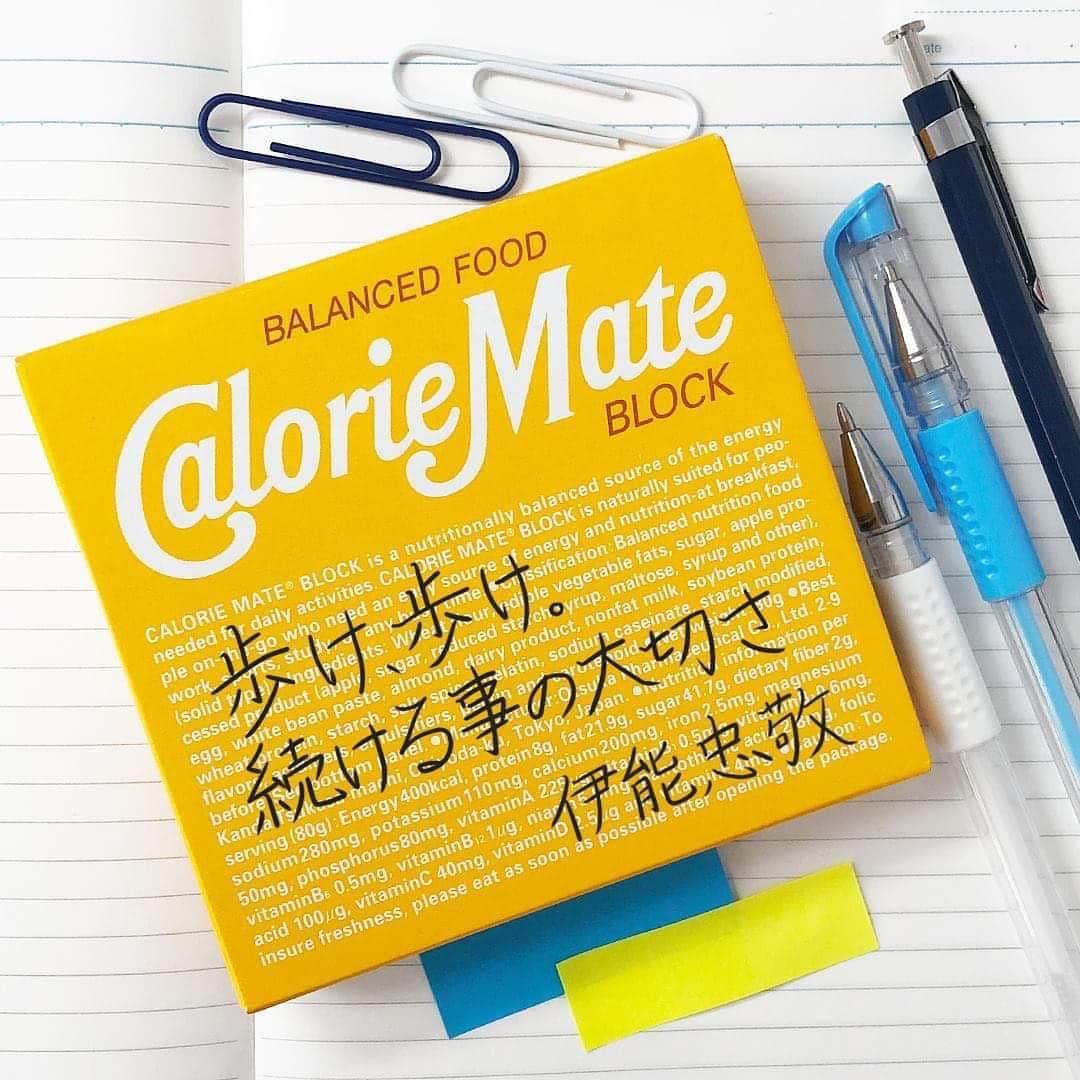 ate
BALANCED FOOD
CalorieMate
BLOCK
CALORIE MATE® BLOCK is a nutritionally balanced source of the energy
needed for daily activities. CALORIE MATE® BLOCK is naturally suited for peo-
ple on the go who need an source of energy and nutrition-at breakfast,
work, any time Classification: Balanced nutrition food
(solid Ingredients: Wheat flour, edible vegetable fats, sugar, apple pro-
cessed product (apple, sugar, reduced starch syrup, maltose, syrup and other),
egg, white bean paste, almond, dairy product, nonfat milk, soybean protein,
wheat protein, starch, salt, gelatin, sodium caseinate, starch modified,
flavor ●Best
before Pharmaceutical Co., Ltd. 2-9
Tokyo, Japan. ●Nutrition information per
serving (80g): Energy 400kcal, protein 8g, fat 21.9g, sugar 41.7g, dietary fiber 2g,
sodium 280mg, potassium 110mg, calcium 200mg, iron 2.5mg, magnesium
50mg, phosphorus 80mg, vitamin A
vitamin B₆ 0.5mg, vitamin B₁₂ 1μg, folic
acid 100μg, vitamin C 40mg, vitamin D To
insure freshness, please eat as soon as possible after opening the package.
歩け、歩け。
続ける事の大切さ
伊能忠敬